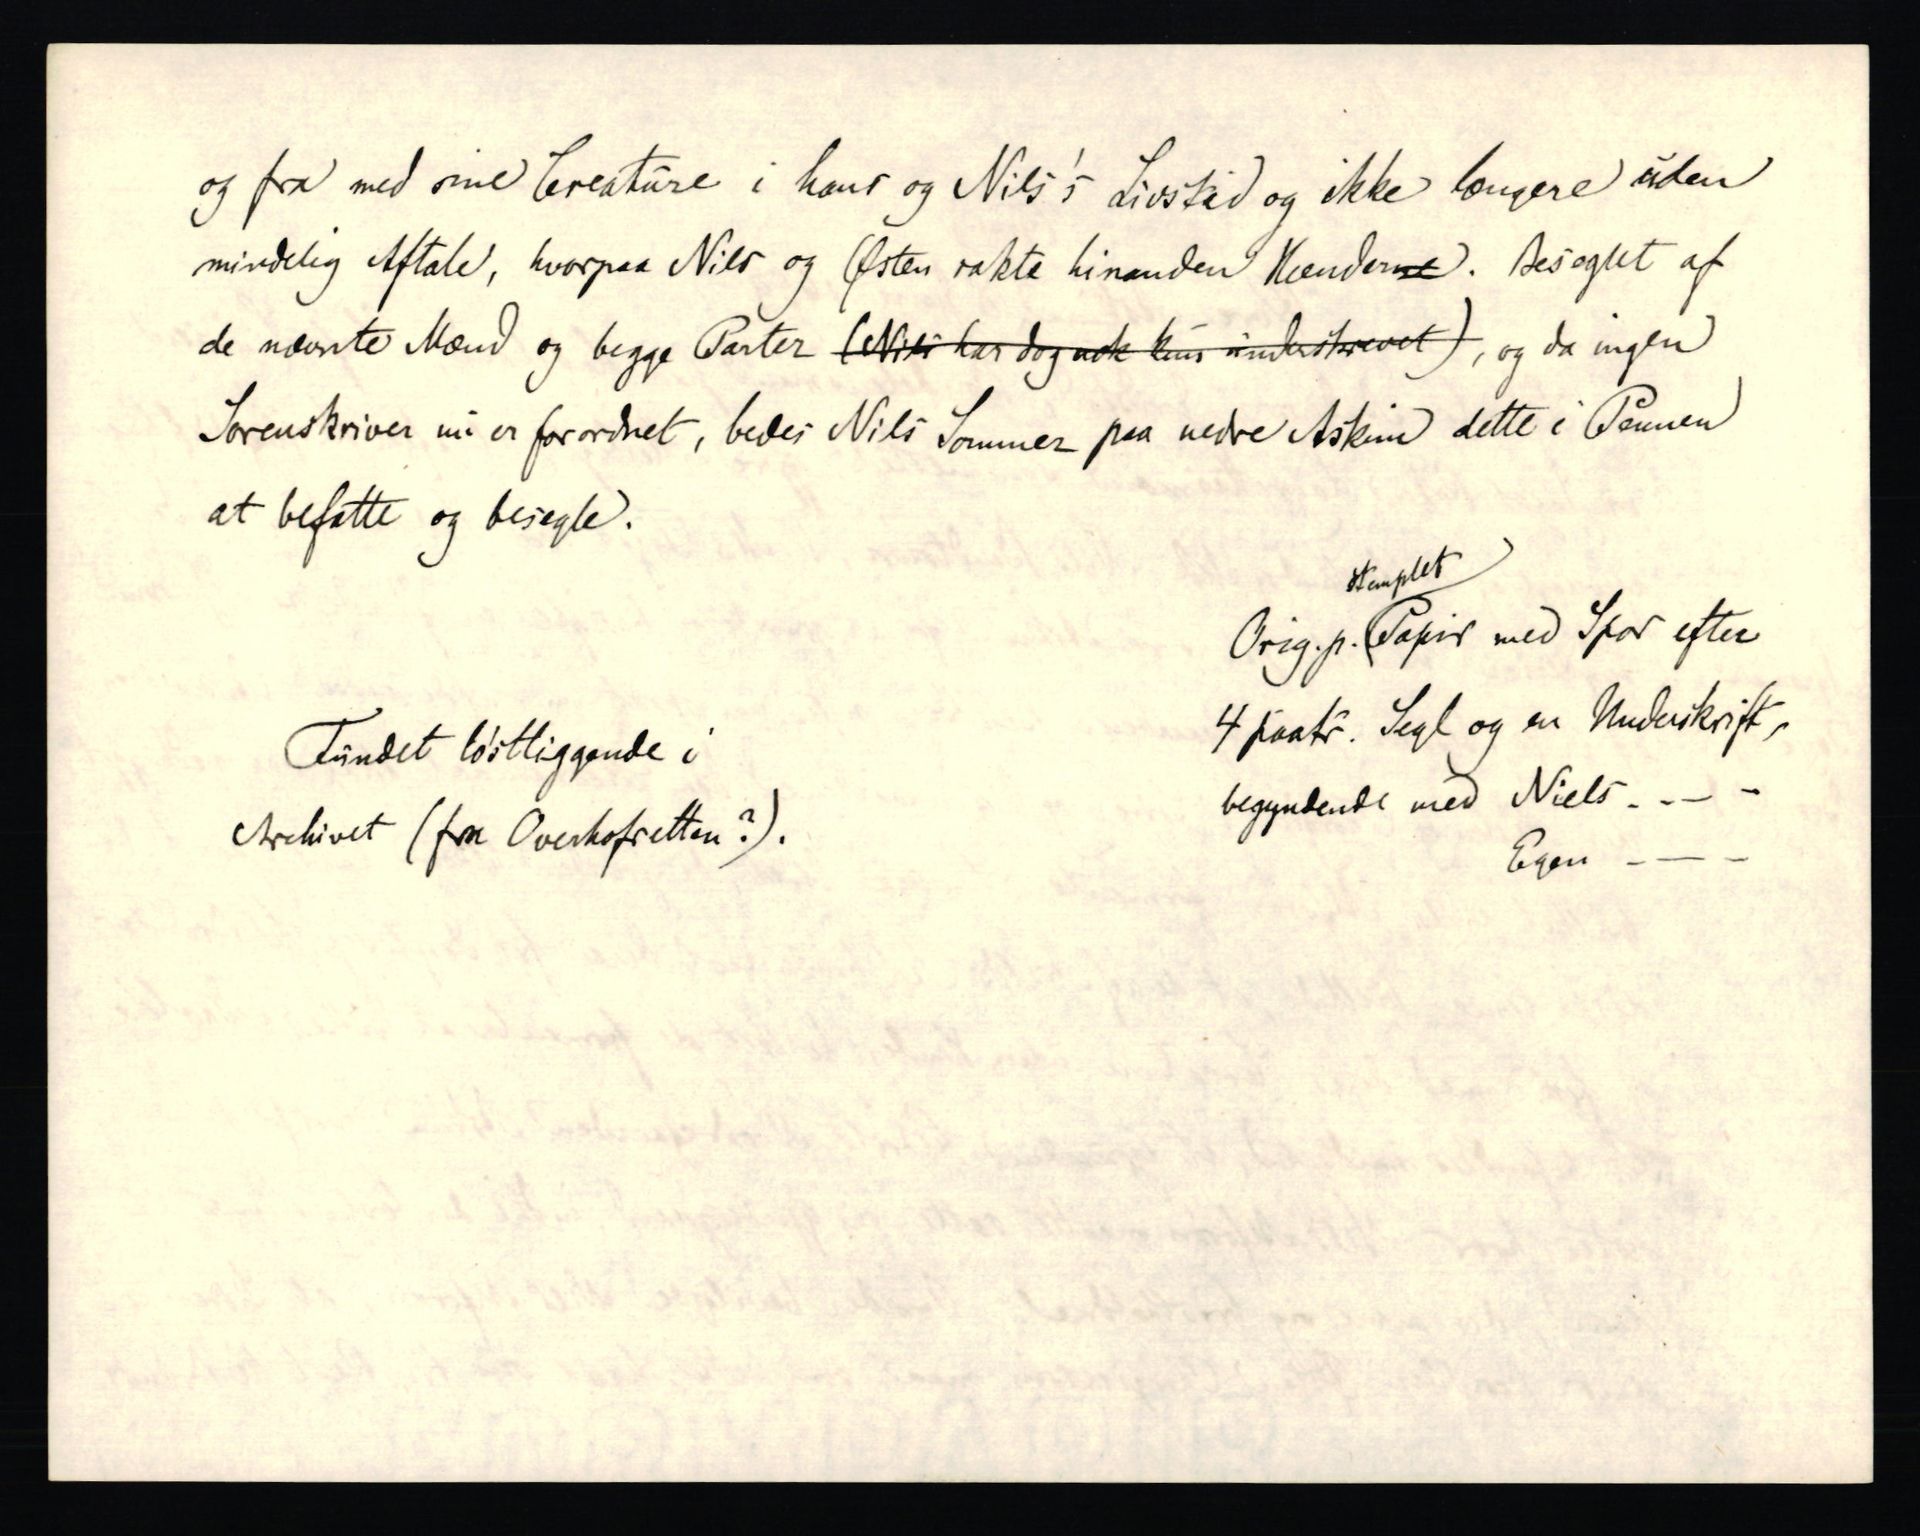 og fra med sine Creature i hans og Nils's Livstid og ikke længere uden
mindelig Aftale, hvorpaa Nils og Østen rakte hinanden Hænderne. Beseglet af
de nævnte Mænd og begge Parter (Nils har dog nok kun underskrevet), og da ingen
Sorenskriver nu er forordnet, bedes Nils Sommer paa nedre Askim dette i Pennen
at befatte og besegle.
stemplet
Orig. p. Papir med Spor efter
4 paatr. Segl og en Underskrift,
begyndende med Niels - - - -
Egen - - -
Fundet løstliggende i
Archivet (fra Overhofretten?).